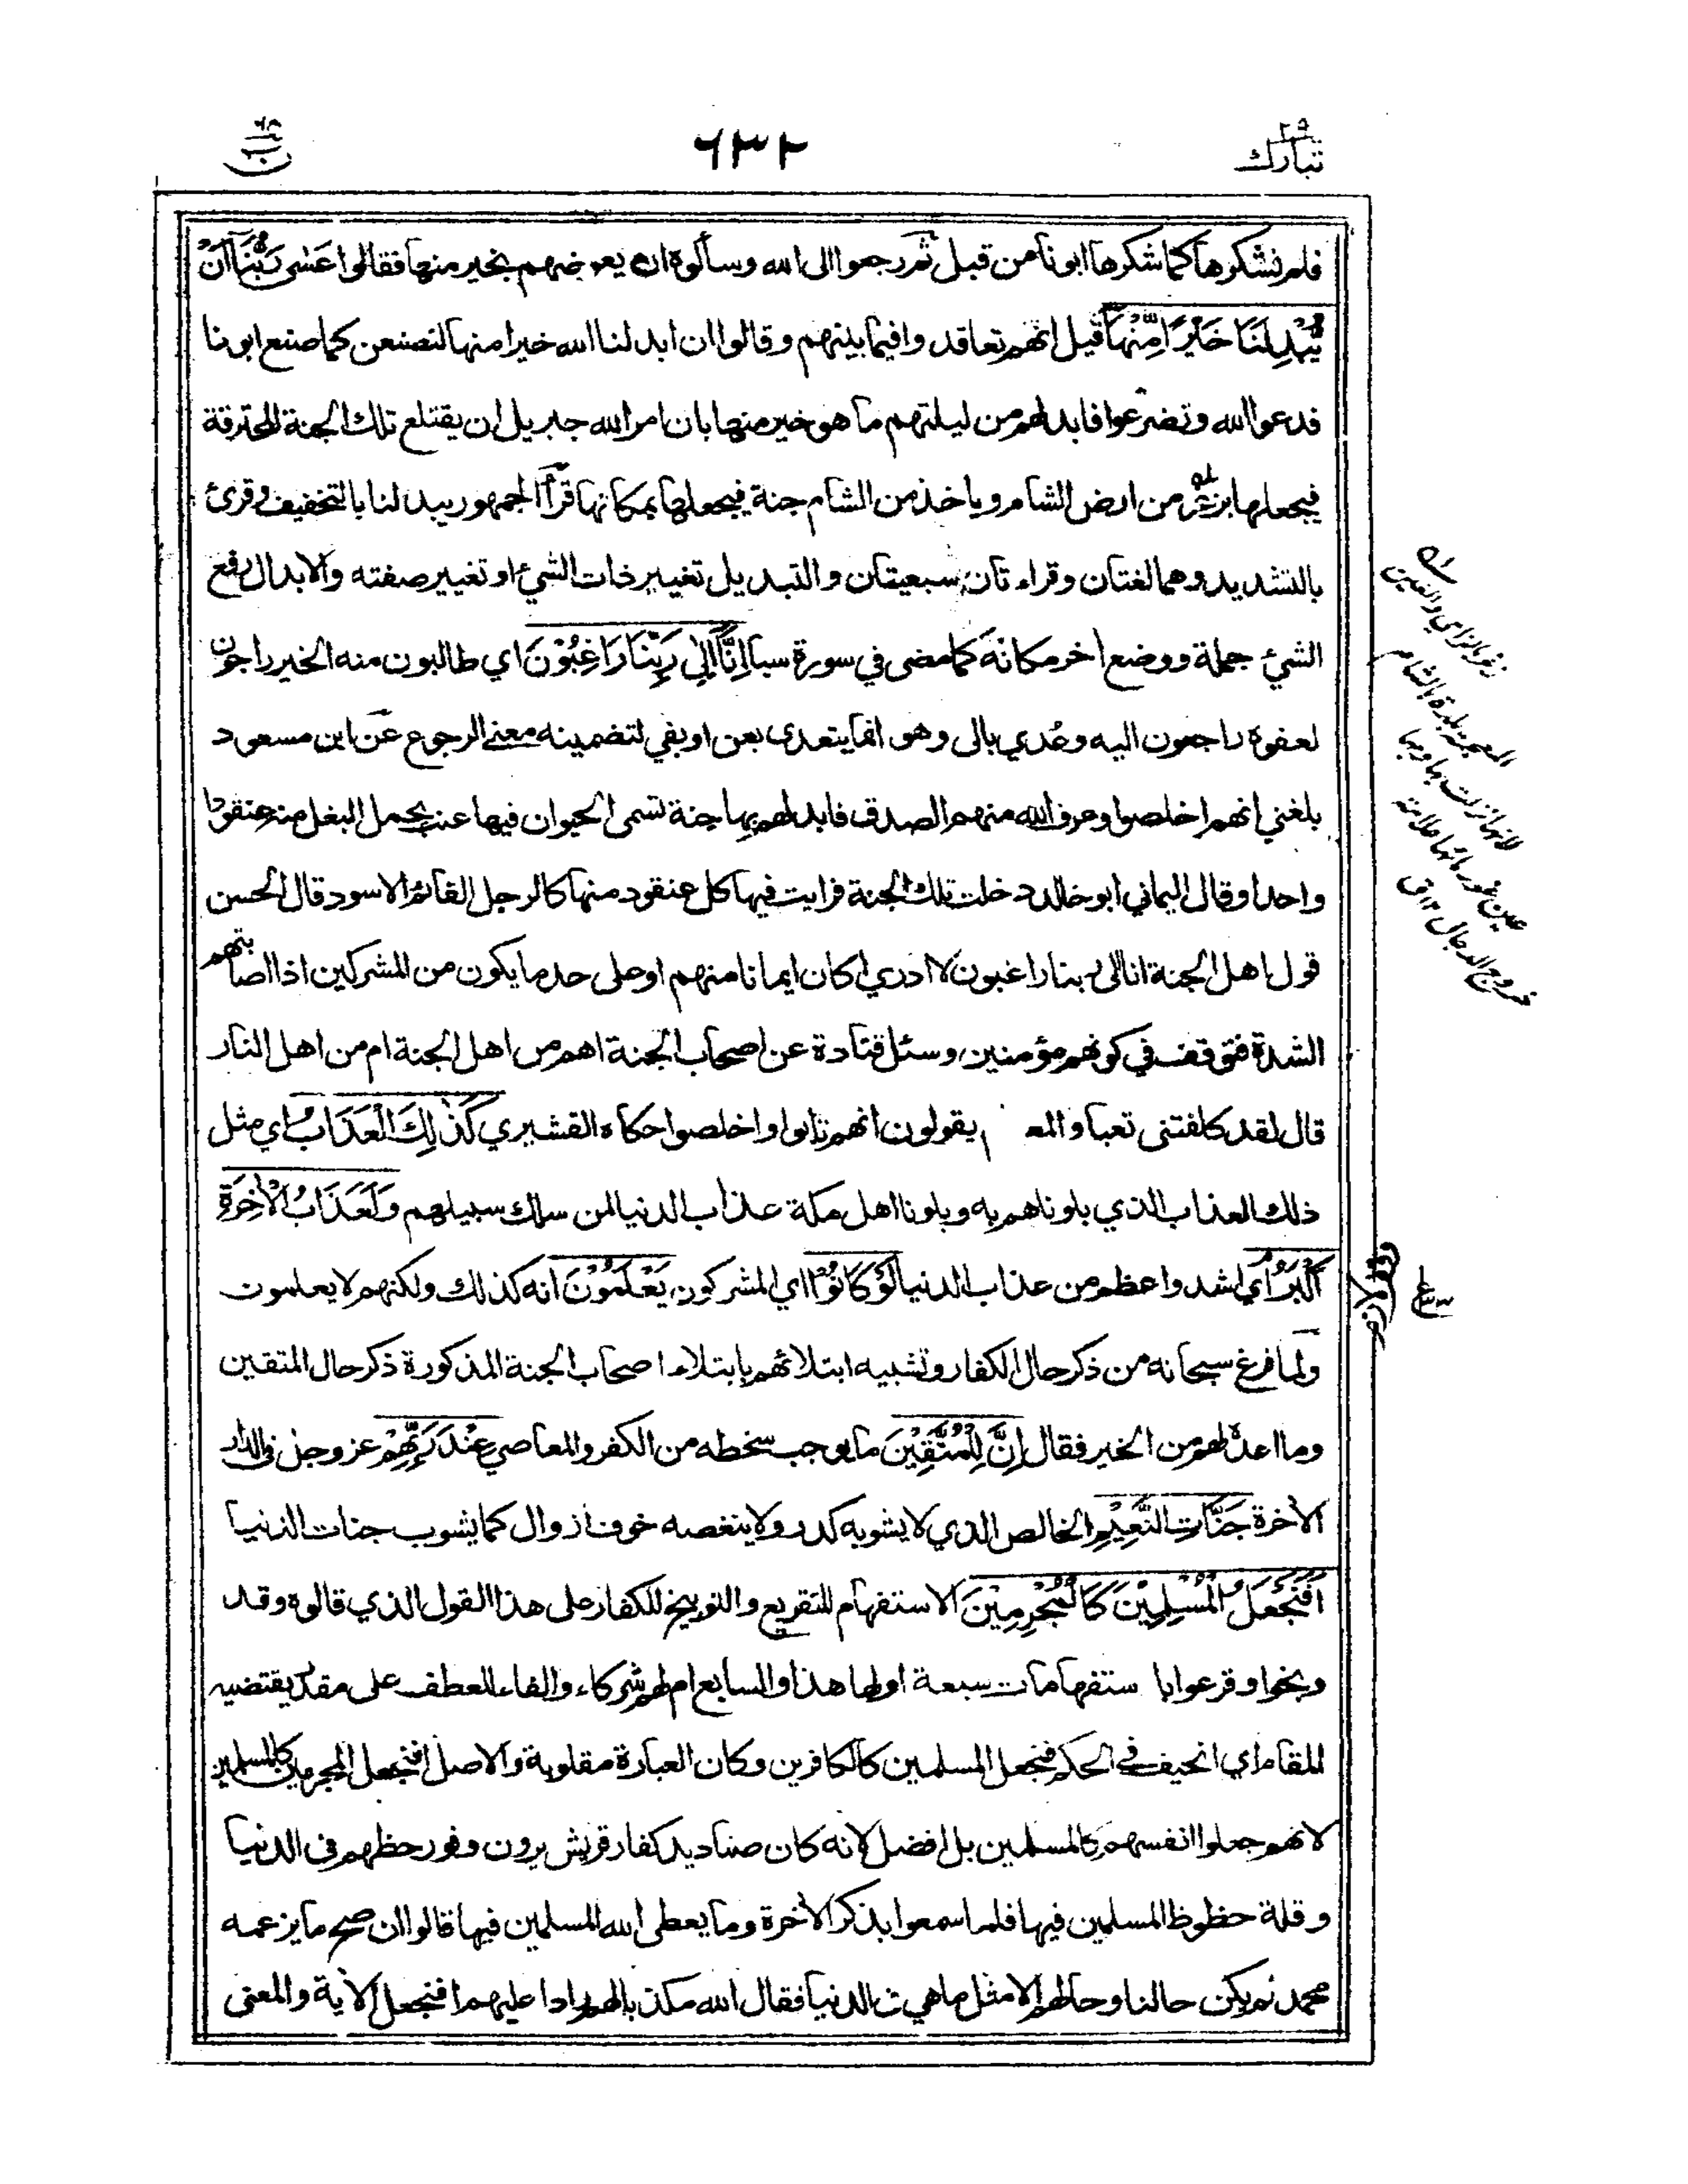 تبارك ٢٩
٦٣٢
ن ٦٨
فلم نشكرها كما شكرها ابونا من قبل ثم رجعوا الى الله وسألوه ان يعوضهم بخير منها فقالوا عَسٰى رَبُّنَآ اَنْ
يُّبْدِلَنَا خَيْرًا مِّنْهَآ قيل انهم تعاقدوا فيما بينهم وقالوا ان ابدلنا الله خيرا منها لنصنعن كما صنع ابونا
فدعوا الله وتضرعوا فابدلهم من ليلتهم ما هو خير منها بان امر الله جبريل ان يقتلع تلك الجنة المحترقة
فيجعلها بزغر من ارض الشام ويأخذ من الشام جنة فيجعلها بمكانها قرأ الجمهور يبدلنا بالتخفيف وقرئ
بالتشديد وهما لغتان وقراءتان سبعيتان والتبديل تغيير ذات الشيئ او تغيير صفته والابدال رفع
الشيئ جملة ووضع اخر مكانه كما مضى في سورة سبا اِنَّآ اِلٰى رَبِّنَا رَاغِبُوْنَ اي طالبون منه الخير راجون
لعفوه راجعون اليه وعُدي بالى وهو انما يتعدى بعن او بفي لتضمينه معنى الرجوع عن ابن مسعود
بلغني انهم اخلصوا وعرف الله منهم الصدق فابدلهم بها جنة تسمى الحيوان فيها عنب يحمل البغل منه عنقودا
واحدا وقال اليماني ابو خالد دخلت تلك الجنة فرايت فيها كل عنقود منها كالرجل القائم الاسود قال الحسن
قول اهل الجنة انا الى ربنا راغبون لا ادري اكان ايمانا منهم او على حد ما يكون من المشركين اذا اصابتهم
الشدة فتوقف في كونهم مؤمنين وسئل قتادة عن اصحاب الجنة اهم من اهل الجنة ام من اهل النار
قال لقد كلفتني تعبا والمع م يقولون انهم تابوا واخلصوا حكاه القشيري كَذٰلِكَ الْعَذَابُ اي مثل
ذلك العذاب الذي بلوناهم به وبلونا اهل مكة عذاب الدنيا لمن سلك سبيلهم وَلَعَذَابُ الْاٰخِرَةِ
اَكْبَرُ اي اشد واعظم من عذاب الدنيا لَوْ كَانُوْا اي المشركون يَعْلَمُوْنَ انه كذلك ولكنهم لا يعلمون
ولما فرغ سبحانه من ذكر حال الكفار وتشبيه ابتلائهم بابتلاء اصحاب الجنة المذكورة ذكر حال المتقين
وما اعده لهم من الخير فقال اِنَّ لِلْمُتَّقِيْنَ ما يوجب سخطه من الكفر والمعاصي عِنْدَ رَبِّهِمْ عز وجل في الدار
الاخرة جَنّٰاتِ النَّعِيْمِ الخالص الذي لا يشوبه كدر ولا ينغصه خوف زوال كما يشوب جنات الدنيا
اَفَنَجْعَلُ الْمُسْلِمِيْنَ كَالْمُجْرِمِيْنَ الاستفهام للتقريع والتوبيخ للكفار على هذا القول الذي قالوه وقد
وبخوا وقرعوا با ستفهامات سبعة اولها هذا والسابع ام لهم شركاء والفاء للعطف على مقدر يقتضيه
المقام اي انحيف في الحكم فنجعل المسلمين كالكافرين وكان العبارة مقلوبة والاصل افنجعل المجرمين كالمسلمين
لانهم جعلوا انفسهم كالمسلمين بل افضل لانه كان صناديد كفار قريش يرون وفور حظهم في الدنيا
وقلة حظوظ المسلمين فيها فلما سمعوا بذكر الاخرة وما يعطي الله المسلمين فيها قالوا ان صح ما يزعمه
محمد لم يكن حالنا وحالهم الا مثل ما هي في الدنيا فقال الله مكذبا لهم رادا عليهم افنجعل الاية والمعنى
زغر بالزاي والغين
المعجمة بلدة بالشام
لانها نزلت بها وبها
عين غور مائها علامة
خروج الدجال ١٢ ق
وقف لازم
ع